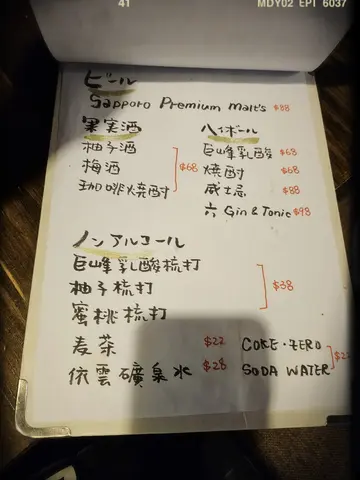 41
MDY02 EPT 6037
ビール
Sapporo Premium Malt's $88
果実酒
柚子酒
梅酒
珈啡燒酎
$68
ハイボール
巨峰乳酸 $68
燒酎 $68
威士忌 $88
六 Gin & Tonic $98
ノンアルコール
巨峰乳酸梳打
柚子梳打
蜜桃梳打
$38
麦茶 $22
依雲礦泉水 $28
COKE・ZERO
SODA WATER